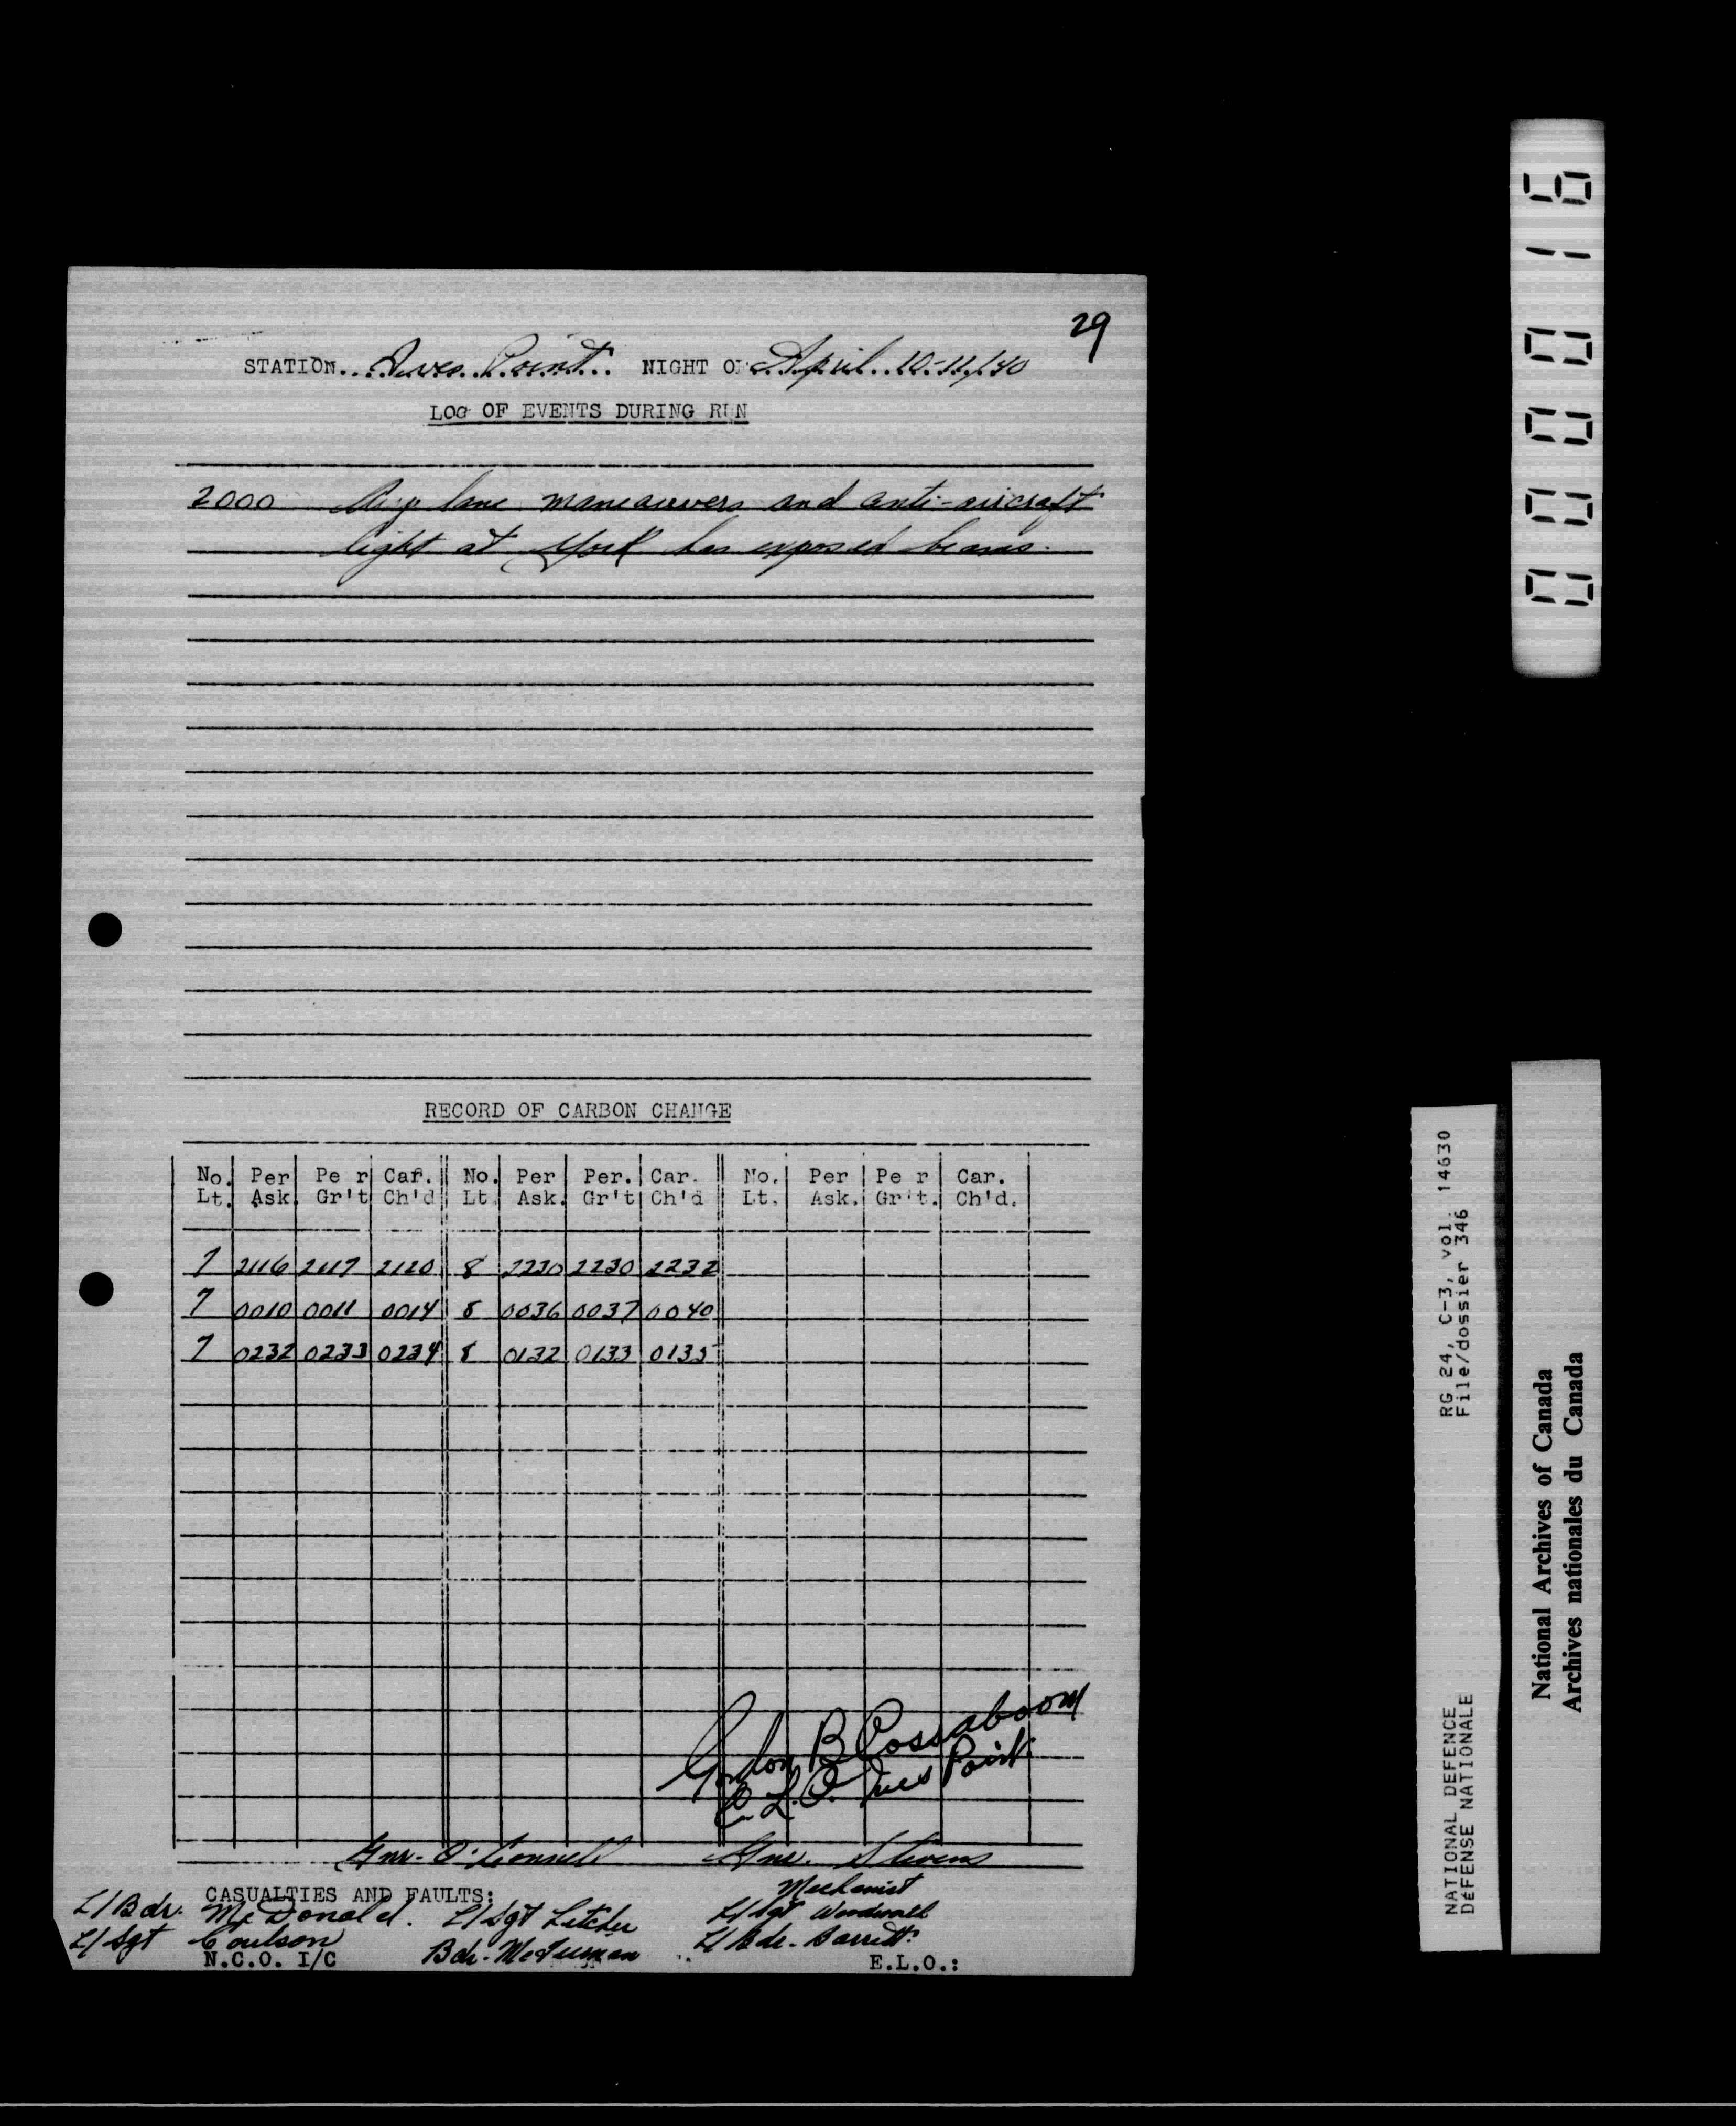 29
STATION...Ives Point... NIGHT OF April 10-11/40
LOG OF EVENTS DURING RUN
2000 Airplane maneauvers and anti-aircraft
light at York has exposed beams.
RECORD OF CARBON CHANGE
No. Lt. | Per Ask. | Pe r Gr't | Car. Ch'd | No. Lt. | Per Ask. | Per. Gr't | Car. Ch'd | No. Lt. | Per Ask. | Pe r Gr't. | Car. Ch'd.
7 2116 2117 2120 8 2230 2230 2232
7 0010 0011 0014 8 0036 0037 0040
7 0232 0233 0234 8 0132 0133 0135
Gordon B Cossaboom
E.L.O. Ives Point
Gnr. O'Connell Gnr. Stevens
CASUALTIES AND FAULTS: Mechanist
L/Bdr. McDonald. L/Sgt Letcher L/Sgt Woodworth
L/Sgt Coulson Bdr. L/Bdr. Barrett
N.C.O. I/C E.L.O.:
0000016
RG 24, C-3, vol. 14630
File/dossier 346
NATIONAL DEFENCE
DéFENSE NATIONALE
National Archives of Canada
Archives nationales du Canada